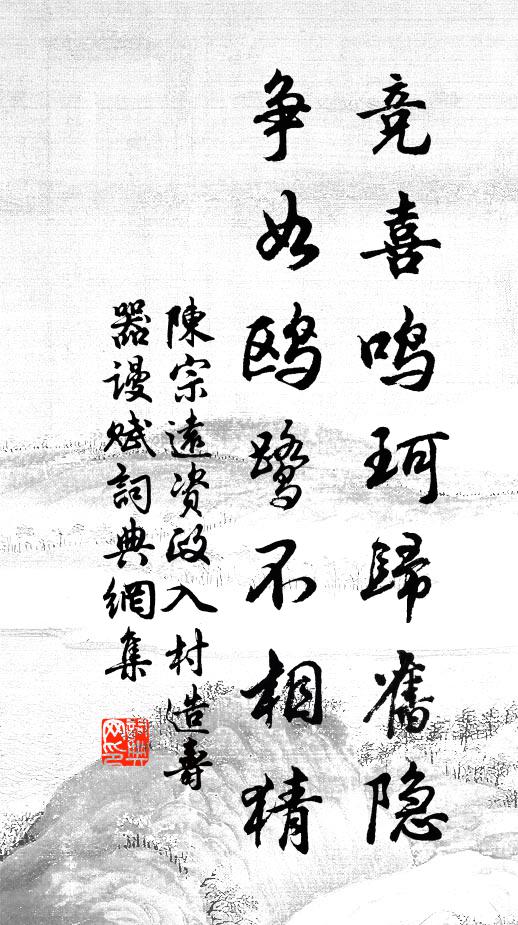 竞喜鸣珂歸舊隐
争如鸥鹭不相猜
陳宗遠資政入村造壽
器谩赋詞典網集